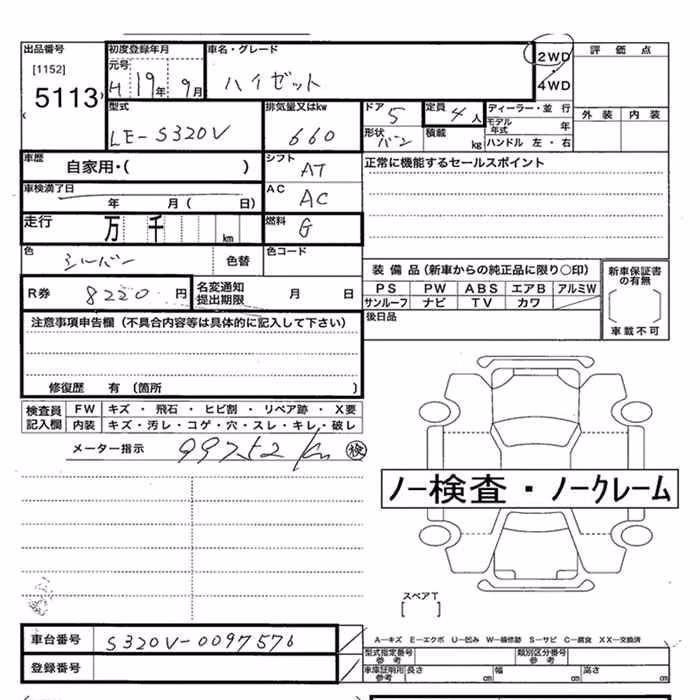 出品番号 初度登録年月 車名・グレード 2WD 評価点
[1152] 元号 H 19年 9月 ハイゼット ・
5113 4WD
型式 排気量又はkw ドア 5 定員 4人 ディーラー・並行 外装 内装
LE-S320V 660 形状 バン 積載 kg モデル年式 年
ハンドル 左・右
車歴 自家用・( ) シフト AT 正常に機能するセールスポイント
車検満了日 年 月( 日) AC AC
走行 万 千 km 燃料 G
色 シルバー 色替 色コード
装備品(新車からの純正品に限り○印) 新車保証書の有無
R券 8220円 名変通知提出期限 月 日 PS PW ABS エアB アルミW
サンルーフ ナビ TV カワ
後日品 車載不可
注意事項申告欄(不具合内容等は具体的に記入して下さい)
修復歴 有(箇所 )
検査員 FW キズ・飛石・ヒビ割・リペア跡・X要
記入欄 内装 キズ・汚レ・コゲ・穴・スレ・キレ・破レ
メーター指示 99752km 検
ノー検査・ノークレーム
スペアT
[ ]
車台番号 S320V-0097576
A−キズ E−エクボ U−凹み W−補修跡 S−サビ C−腐食 XX−交換済
型式指定番号 参考 類別区分番号 参考
登録番号 車庫証明用参考 長さ cm 幅 cm 高さ cm